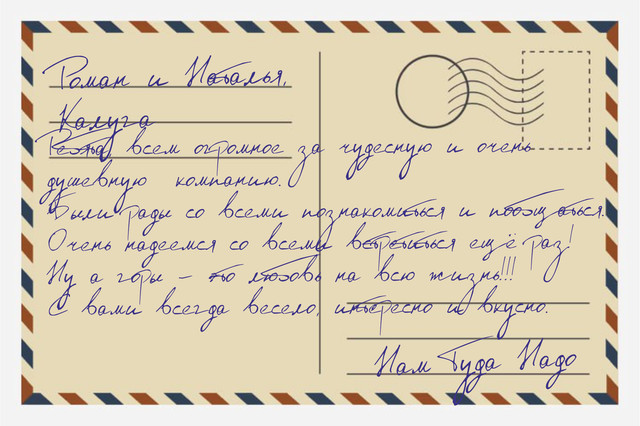 Роман и Наталья,
Калуга
Ребята, всем огромное за чудесную и очень
душевную компанию.
Были рады со всеми познакомиться и пообщаться.
Очень надеемся со всеми встретиться ещё раз!
Ну а горы – то любовь на всю жизнь!!!
С вами всегда весело, интересно и вкусно.
Нам Туда Надо